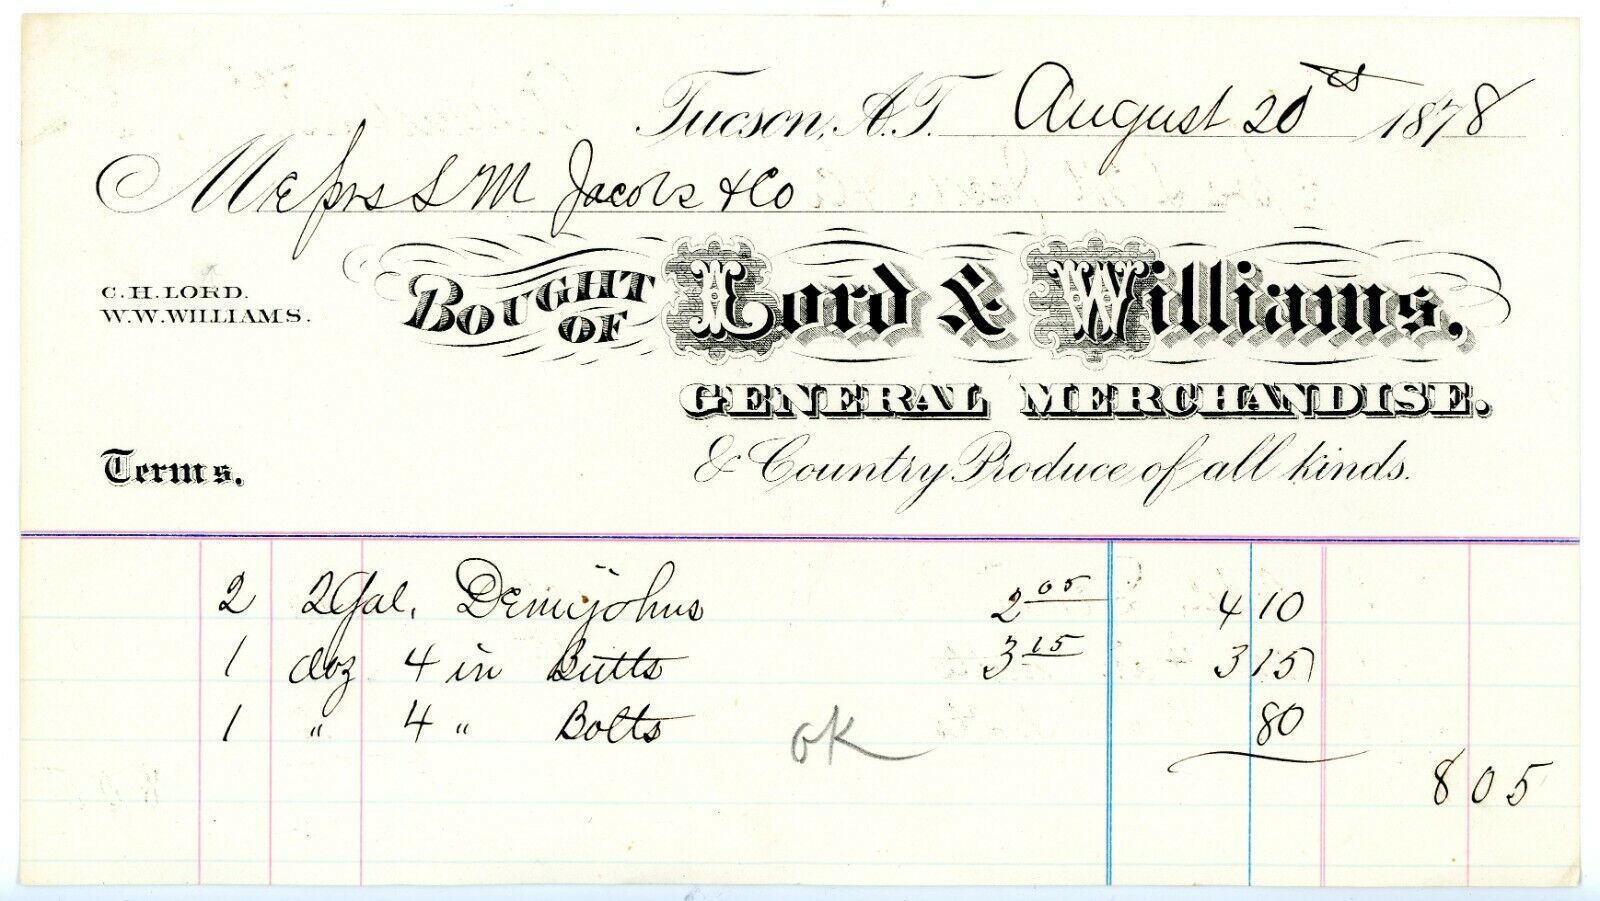 Tucson, A.T. August 20th 1878
Messrs L M Jacobs & Co
C.H. LORD.
W.W. WILLIAMS.
BOUGHT OF Lord & Williams,
GENERAL MERCHANDISE.
Terms.
& Country Produce of all kinds.
2 2 Gal. Demijohns 2 05 4 10
1 doz 4 in Butts 3 15 3 15
1 " 4 " Bolts 80
OK
8 05